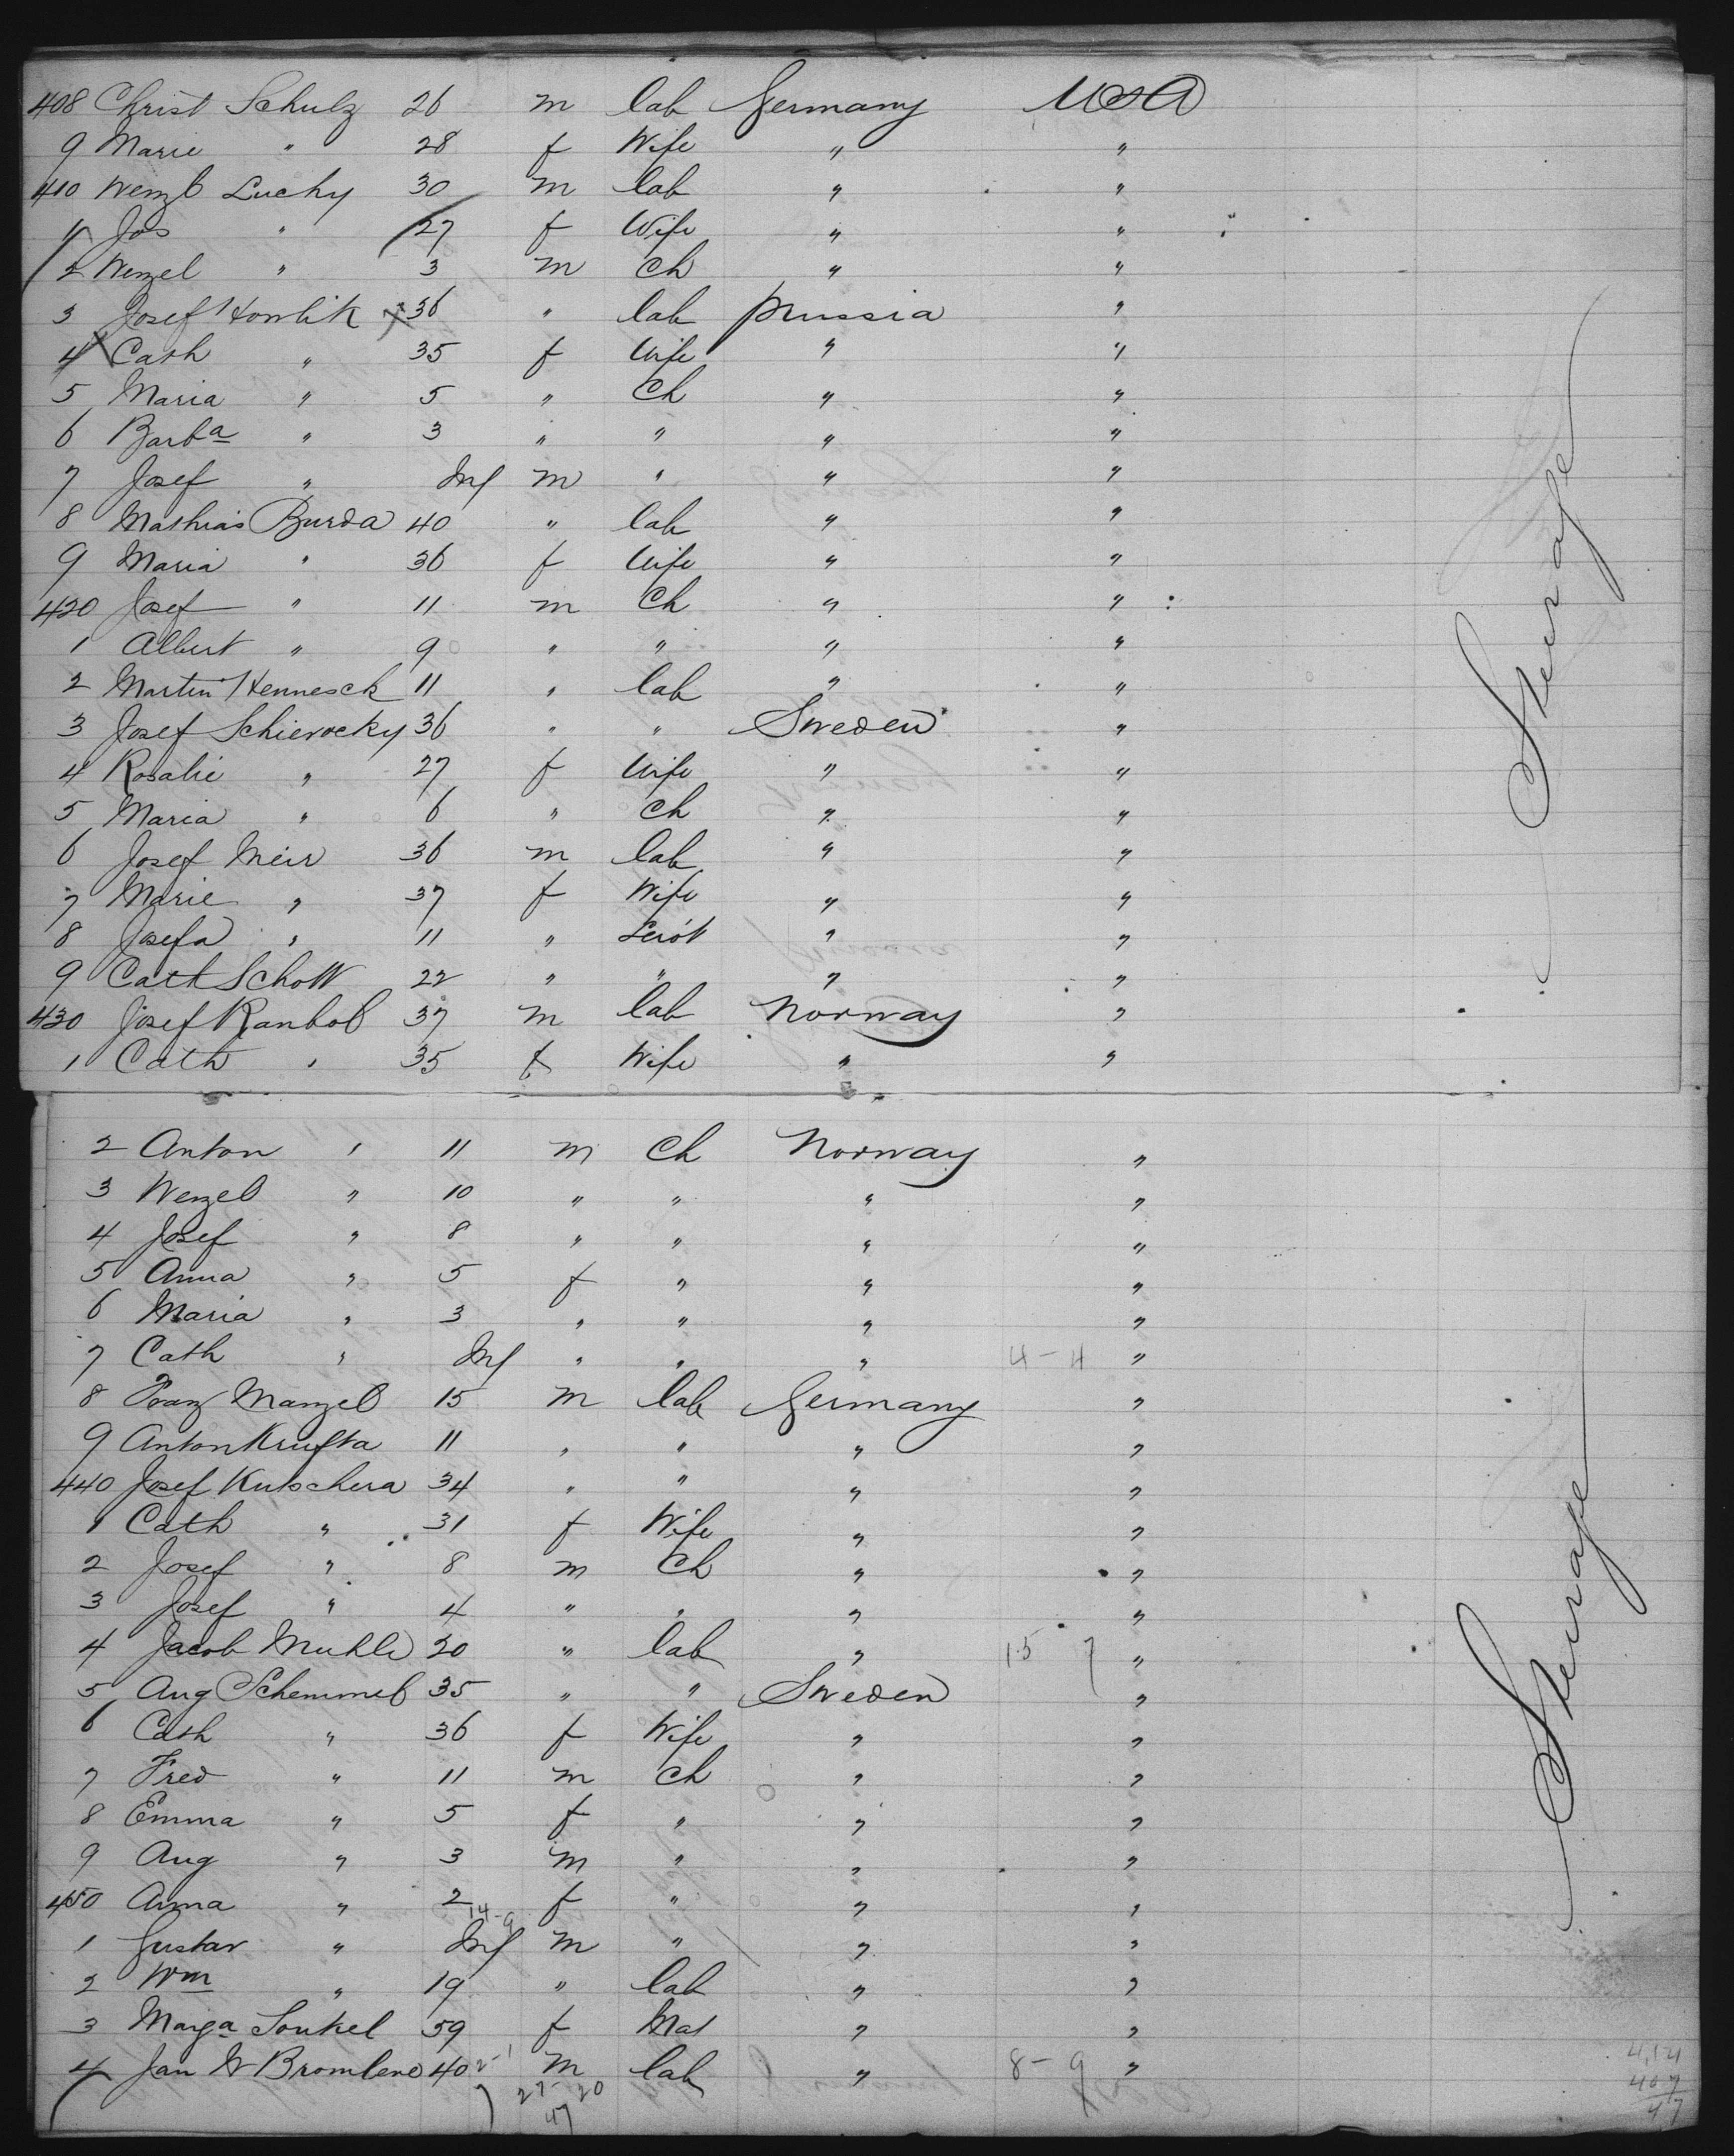 408 Christ Schulz 26 m lab Germany USA
9 Marie " 28 f Wife " "
410 Wenzl Luchy 30 m lab " "
1 Jos " 27 f Wife " "
2 Wenzel " 3 m Ch " "
3 Josef Howlik 36 " lab Prussia "
4 Cath " 35 f Wife " "
5 Maria " 5 " Ch " "
6 Barba " 3 " " " "
7 Josef " Inf m " " "
8 Mathias Burda 40 " lab " "
9 Maria " 36 f Wife " "
420 Josef " 11 m Ch " "
1 Albert " 9 " " " "
2 Martin Hennesck 11 " lab " "
3 Josef Schierocky 36 " " Sweden "
4 Rosalie " 27 f Wife " "
5 Maria " 6 " Ch " "
6 Josef Meir 36 m lab " "
7 Marie " 37 f Wife " "
8 Josefa " 11 " " "
9 Cath Schott 22 " " " "
430 Josef Kanbol 37 m lab Norway "
1 Cath " 35 f Wife " "
Steerage
2 Anton " 11 m Ch Norway "
3 Wenzel " 10 " " " "
4 Josef " 8 " " " "
5 Anna " 5 f " " "
6 Maria " 3 " " " "
7 Cath " Inf " " " 4-4 "
8 Franz Manzel 15 m lab Germany "
9 Anton Krufta 11 " " " "
440 Josef Kutschera 34 " " " "
1 Cath " 31 f Wife " "
2 Josef " 8 m Ch " "
3 Josef " 4 " " " "
4 Jacob Muhle 20 " lab " 15 7 "
5 Aug Schemmel 35 " " Sweden "
6 Cath " 36 f Wife " "
7 Fred " 11 m Ch " "
8 Emma " 5 f " " "
9 Aug " 3 m " " "
450 Anna " 2 f " " "
14-9
1 Gustav " Inf m " " "
2 Wm " 19 " lab " "
3 Marga Soukel 59 f " "
4 Jan W Bromlene 40 2-1 m lab " 8-9 "
27-20
47
Steerage
454
407
47